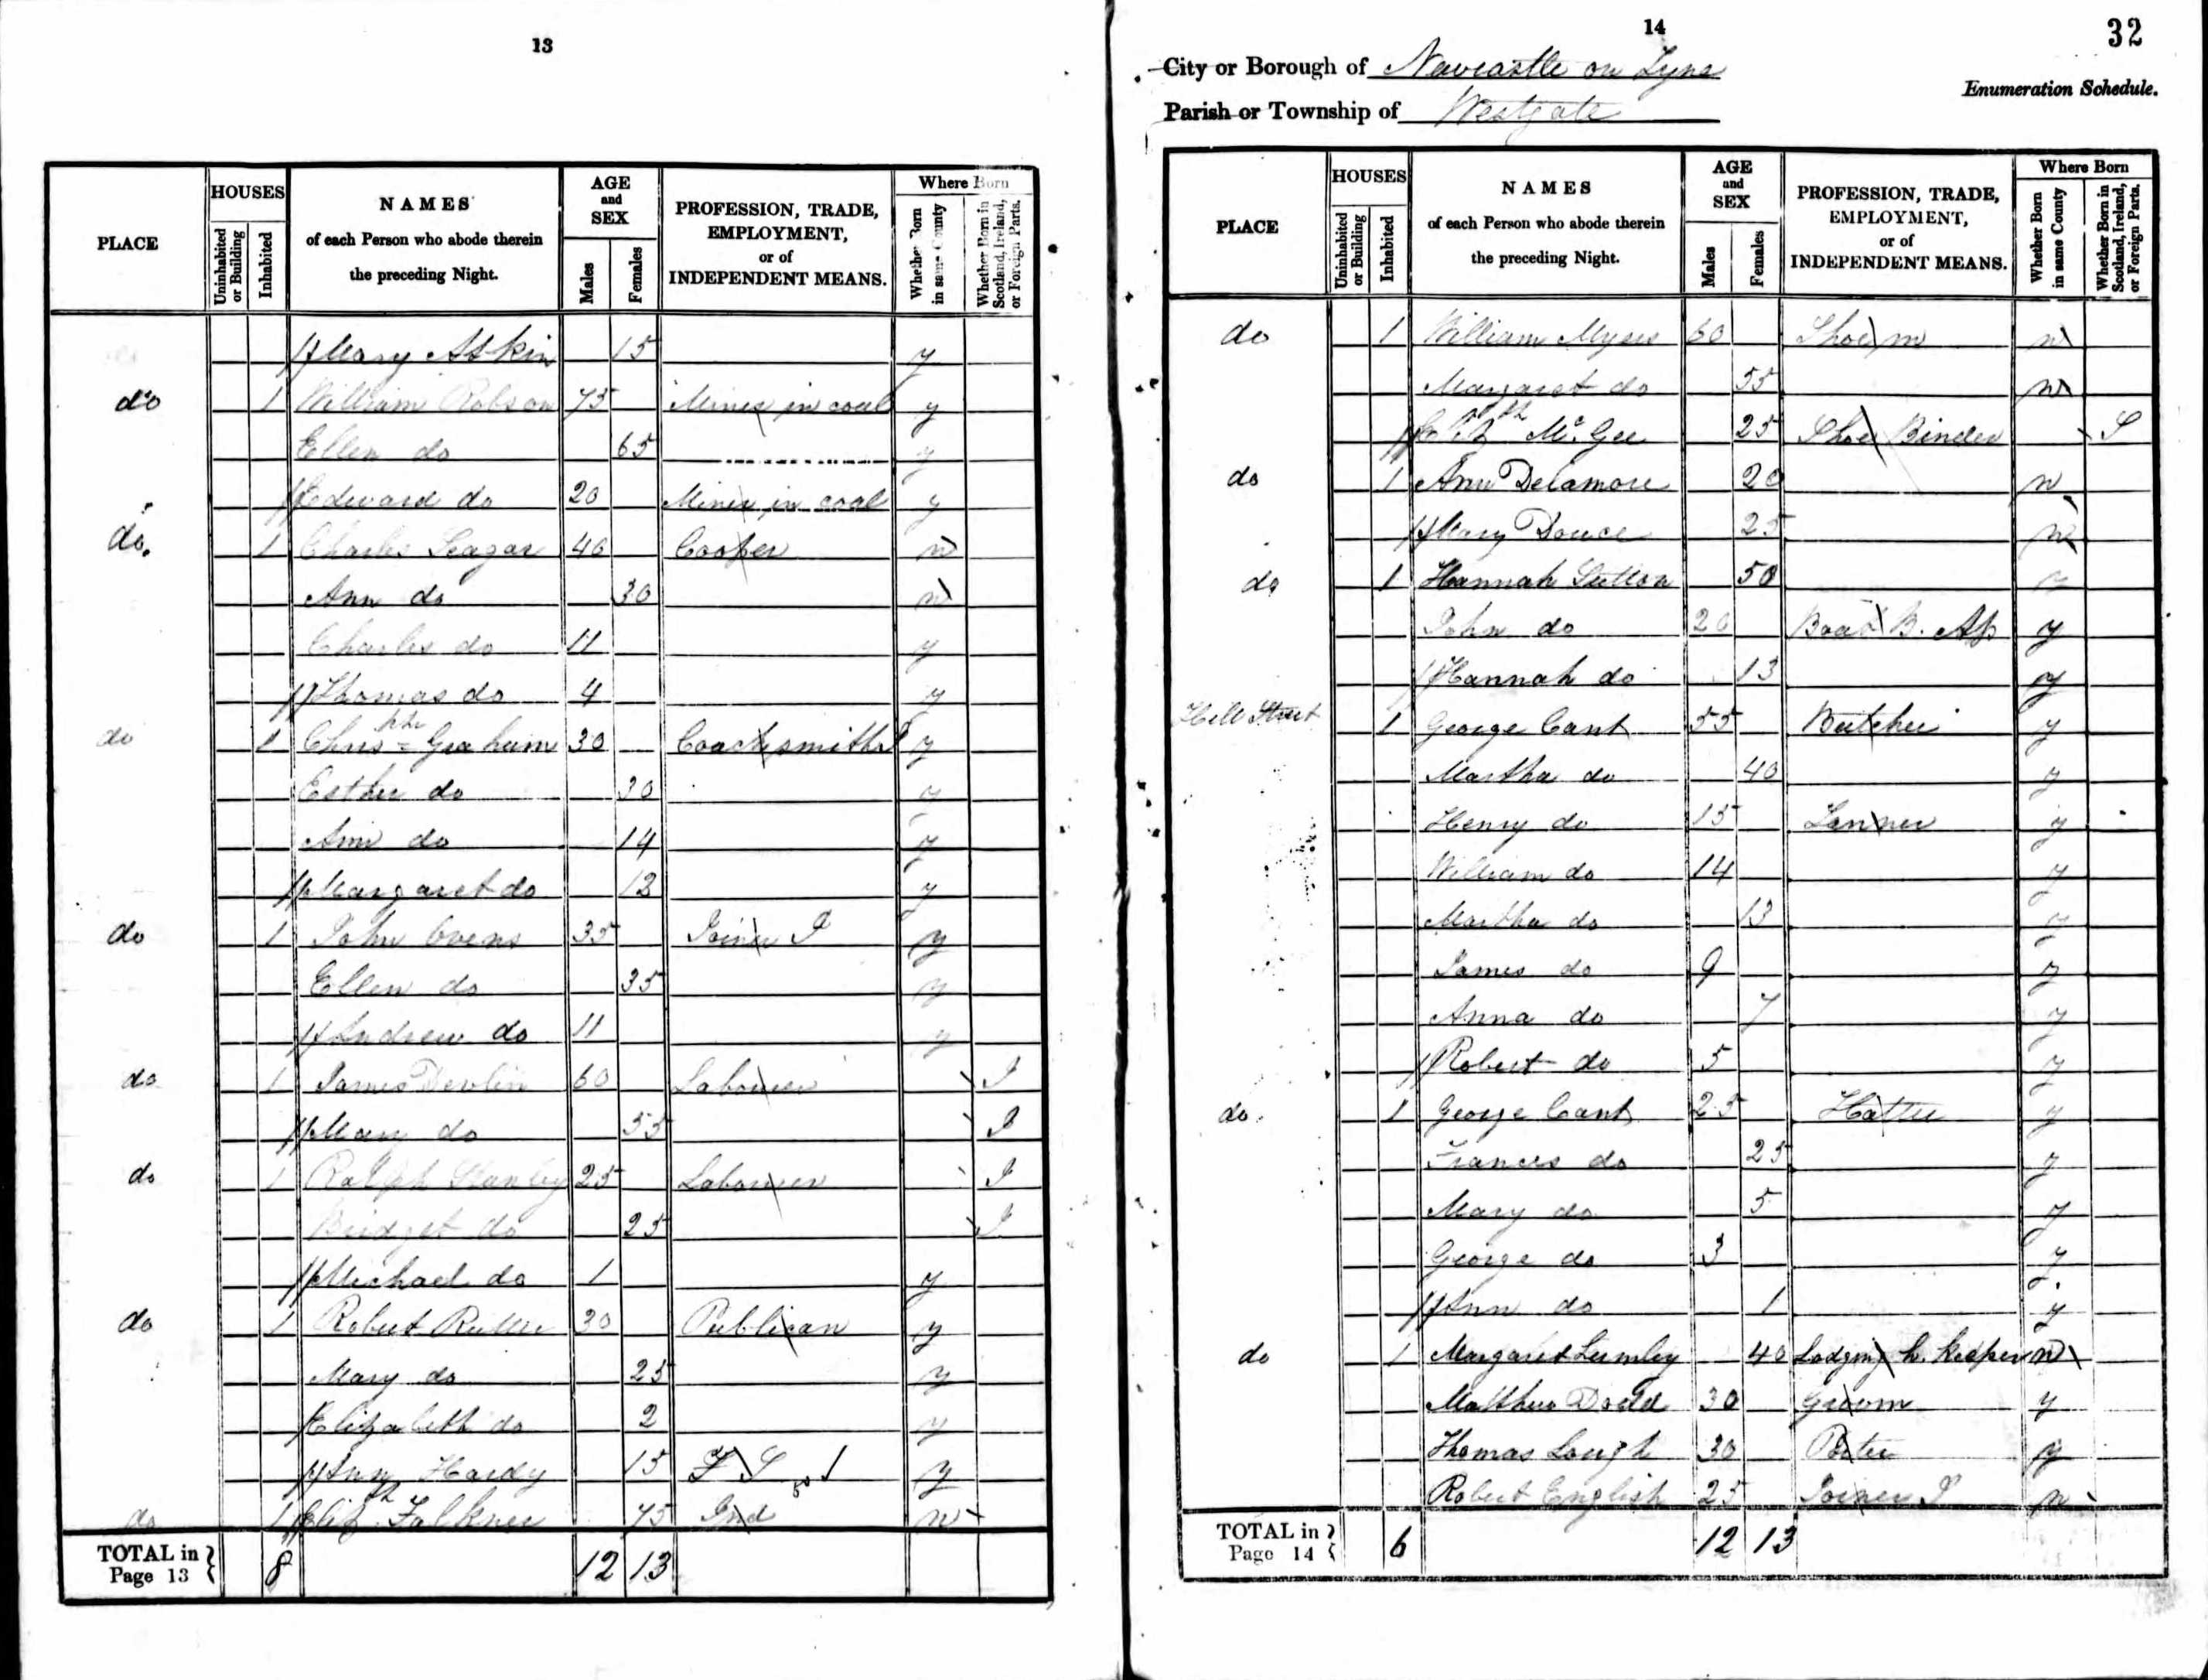 13
PLACE
HOUSES
Uninhabited or Building
Inhabited
NAMES
of each Person who abode therein
the preceding Night.
AGE and SEX
Males
Females
PROFESSION, TRADE, EMPLOYMENT, or of INDEPENDENT MEANS.
Where Born
Whether Born in same County
Whether Born in Scotland, Ireland, or Foreign Parts.
Mary Atkin 15 y
do 1 William Robson 75 Miner in coal y
Ellen do 65 y
Edward do 20 Miner in coal y
do. 1 Charles Seagar 40 Cooper n
Ann do 30 n
Charles do 11 y
Thomas do 4 y
do 1 Chrisphr Graham 30 Coachsmith J y
Esther do 30 y
Ann do 14 y
Margaret do 12 y
do 1 John Evens 35 Joiner J y
Ellen do 35 y
Andrew do 11 y
do 1 James Devlin 60 Labourer I
Mary do 55 I
do 1 Ralph Stanley 25 Labourer I
Bridget do 25 I
Michael do 1 y
do 1 Robert 30 Publican y
Mary do 25 y
Elizabeth do 2 y
Ann Hardy 15 F S y
do 1 Elizth Falkner 75 Ind n
TOTAL in Page 13 8 12 13
14
32
City or Borough of Newcastle on Tyne
Enumeration Schedule.
Parish or Township of Westgate
PLACE
HOUSES
Uninhabited or Building
Inhabited
NAMES
of each Person who abode therein
the preceding Night.
AGE and SEX
Males
Females
PROFESSION, TRADE, EMPLOYMENT, or of INDEPENDENT MEANS.
Where Born
Whether Born in same County
Whether Born in Scotland, Ireland, or Foreign Parts.
do 1 William Myers 60 Shoe m n
Margaret do 55 n
McGee 25 Shoe Binder S
do 1 Ann Delamore 20 n
Mary Douce 25 n
do 1 Hannah Sutton 50 y
John do 20 Boat B. Ap y
Hannah do 13 y
Hill Street 1 George Cant 55 Butcher y
Martha do 40 y
Henry do 15 Tanner y
William do 14 y
Martha do 13 y
James do 9 y
Anna do 7 y
Robert do 5 y
do. 1 George Cant 25 Hatter y
Frances do 25 y
Mary do 5 y
George do 3 y
Ann do 1 y
do 1 Margaret Lumley 40 Lodging h. keeper n
Matthew Dodd 30 Groom y
Thomas Lough 30 y
Robert English 25 Joiner J n
TOTAL in Page 14 6 12 13